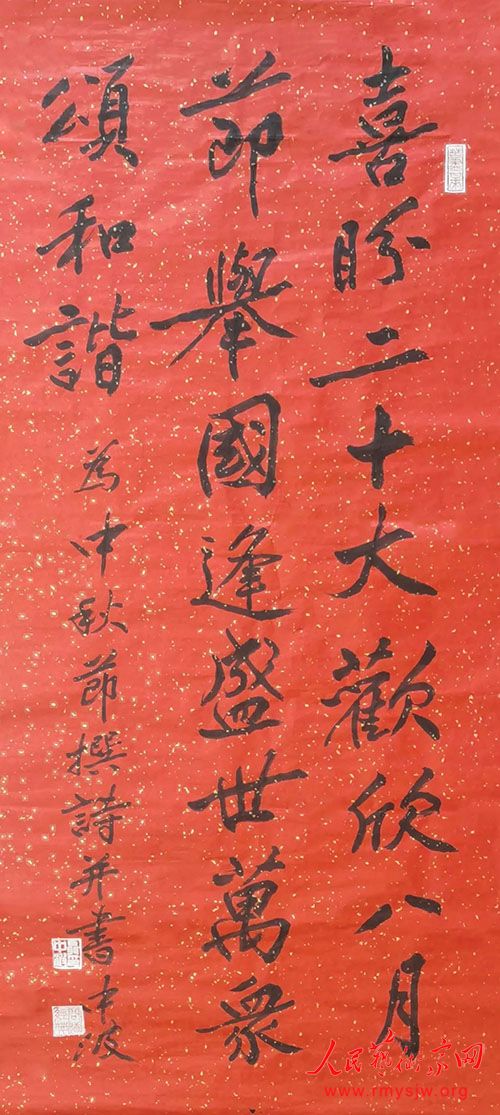 喜盼二十大歡欣八月
節舉國逢盛世萬衆
頌和諧
為中秋節撰詩并書中波
人民藝術家网
www.rmysjw.org